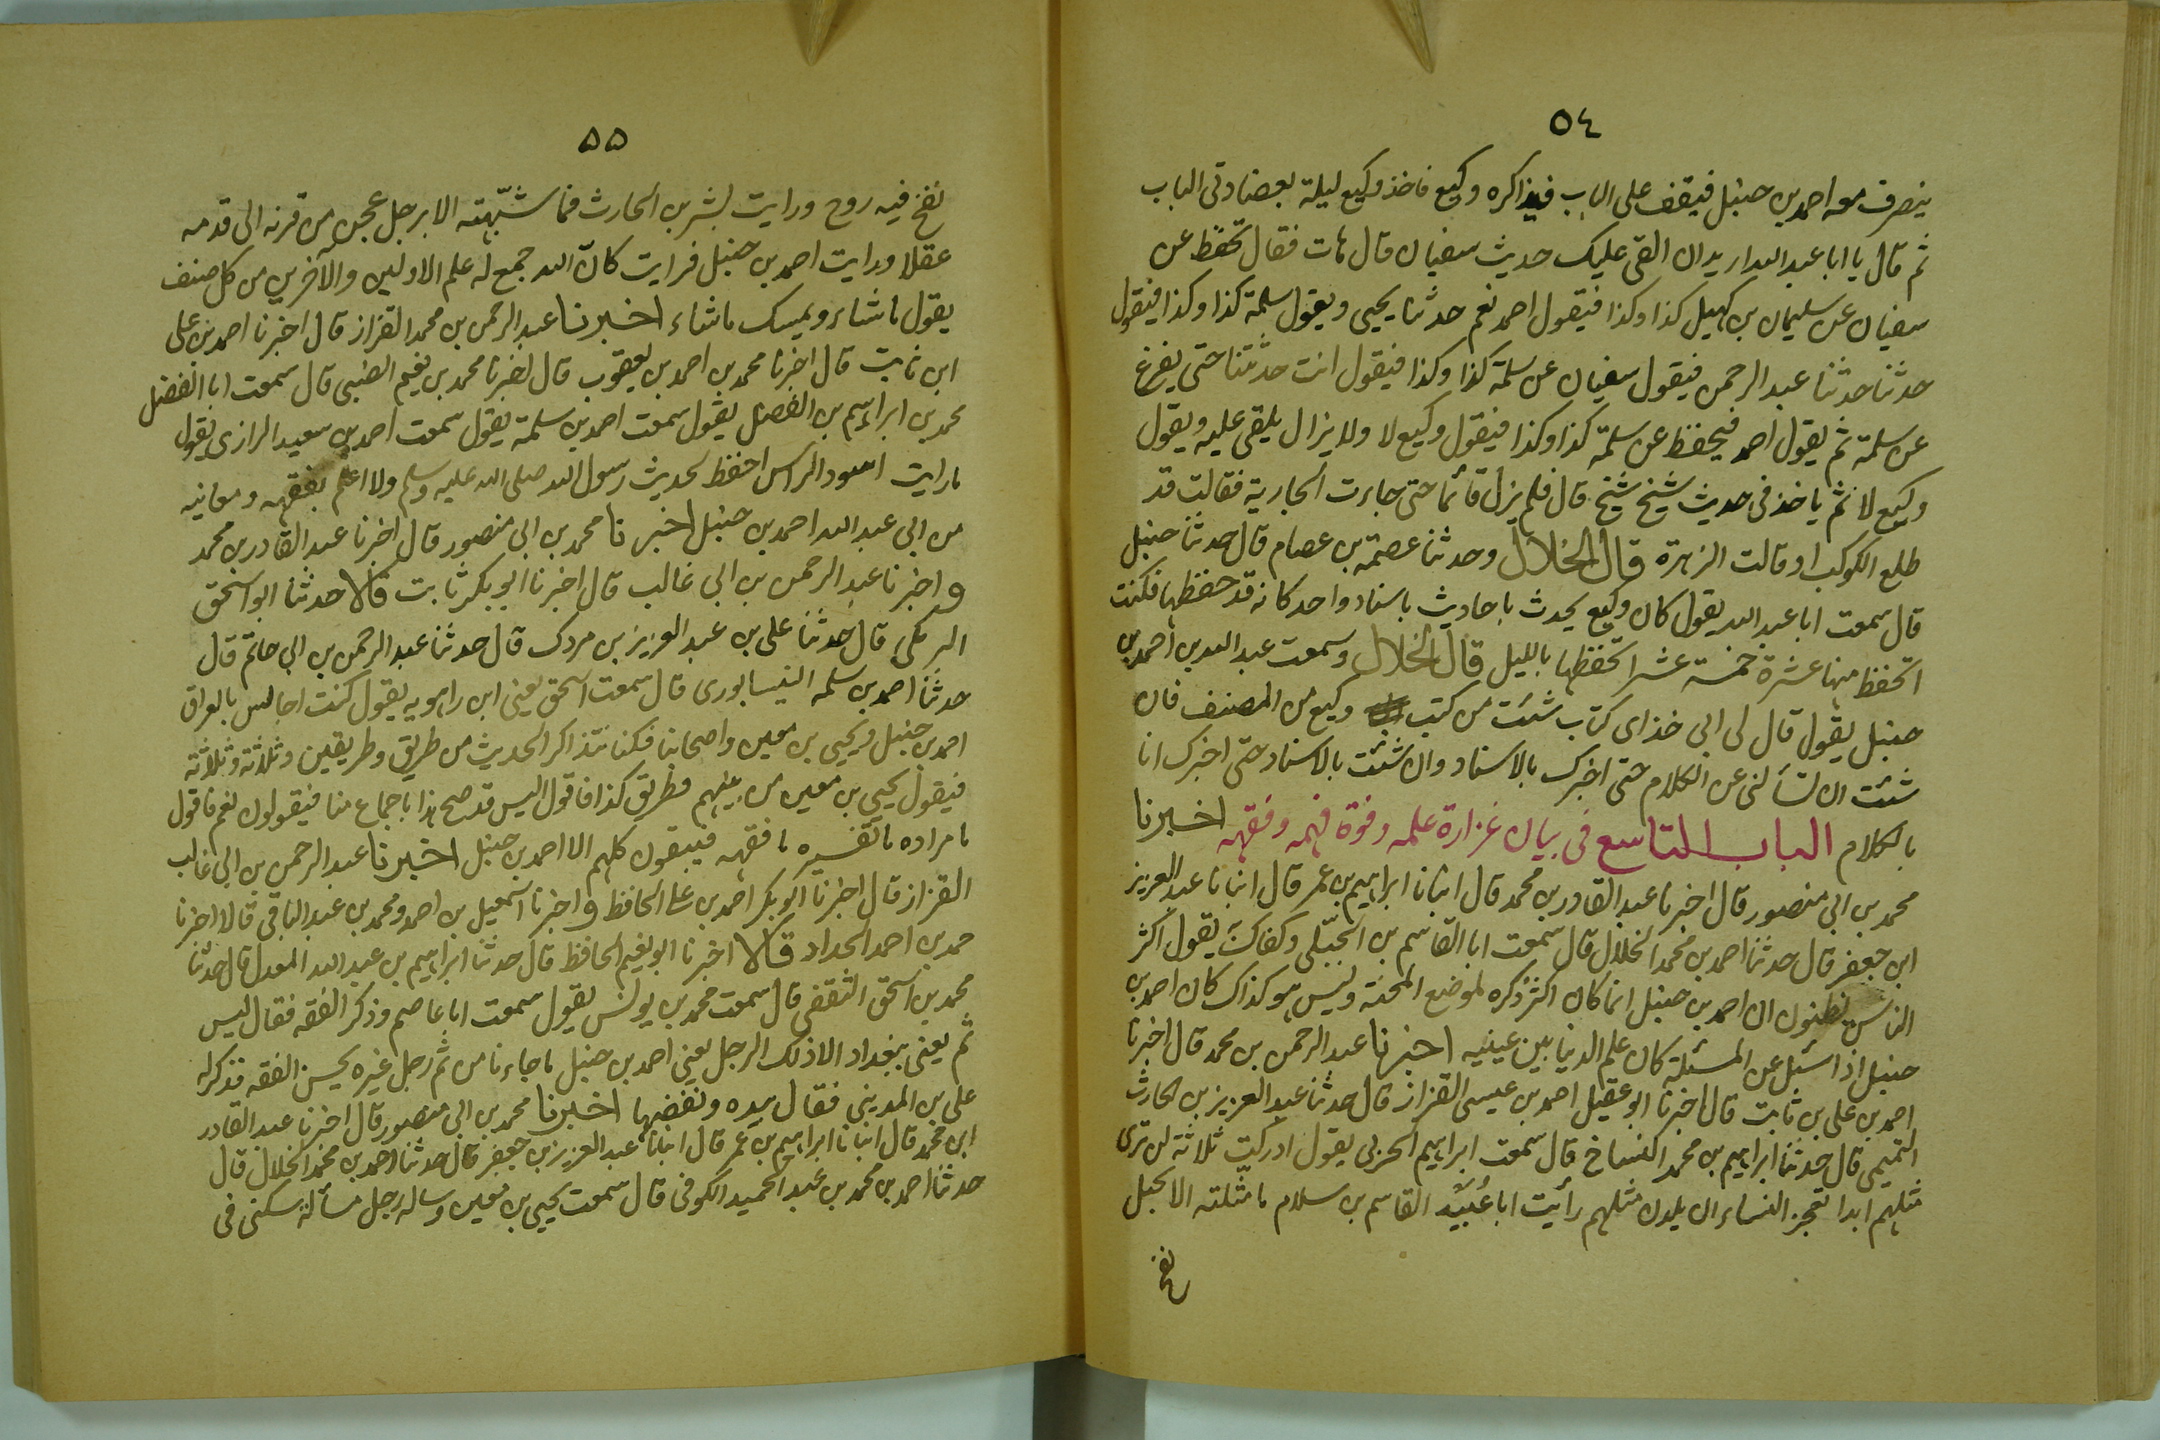 ٥٤
ينصرف معه احمد بن حنبل فيقف على الباب فيذاكره وكيع فاخذ وكيع ليلة بعضادتى الباب
ثم قال يا ابا عبد الله اريد ان القى عليك حديث سفيان قال هات فقال تحفظ عن
سفيان عن سليمان بن كهيل كذا وكذا فيقول احمد نعم حدثنا يحيى ويقول سلمة كذا وكذا فيقول
حدثنا حدثنا عبد الرحمن فيقول سفيان عن سلمة كذا وكذا فيقول انت حدثتنا حتى يفرغ
عن سلمة ثم يقول احمد فيحفظ عن سلمة كذا وكذا فيقول وكيع لا ولا يزال يلقى عليه ويقول
وكيع لا ثم ياخذ فى حديث شيخ شيخ قال فلم يزل قائما حتى جاءت الجارية فقالت قد
طلع الكوكب او قالت الزهرة قال الخلال وحدثنا عصمة بن عصام قال حدثنا حنبل
قال سمعت ابا عبد الله يقول كان وكيع يحدث باحاديث باسناد واحد كانه قد حفظها فكنت
اتحفظ منها عشرة خمسة عشر اتحفظها بالليل قال الخلال وسمعت عبد الله بن احمد بن
حنبل يقول قال لى ابى خذ اى كتاب شئت من كتب وكيع من المصنف فان
شئت ان تسألنى عن الكلام حتى اخبرك بالاسناد وان شئت بالاسناد حتى اخبرك انا
بالكلام الباب التاسع فى بيان غزارة علمه وقوة فهمه وفقهه اخبرنا
محمد بن ابى منصور قال اخبرنا عبد القادر بن محمد قال انبانا ابراهيم بن عمر قال انبانا عبد العزيز
ابن جعفر قال حدثنا احمد بن محمد الخلال قال سمعت ابا القاسم بن الجبلى وكفاك يقول اكثر
الناس يظنون ان احمد بن حنبل انما كان اكثر ذكره لموضع المحنة وليس هو كذاك كان احمد بن
حنبل اذا سئل عن المسئلة كان علم الدنيا بين عينيه اخبرنا عبد الرحمن بن محمد قال اخبرنا
احمد بن على بن ثابت قال اخبرنا ابو عقيل احمد بن عيسى القزاز قال حدثنا عبد العزيز بن الحارث
التميمى قال حدثنا ابراهيم بن محمد النساخ قال سمعت ابراهيم الحربى يقول ادركت ثلاثة لن ترى
مثلهم ابدا تعجز النساء ان يلدن مثلهم رأيت ابا عبيد القاسم بن سلام ما مثلته الا بجبل
نفخ
٥٥
نفخ فيه روح ورايت بشر بن الحارث فما شبهته الا برجل عجن من قرنه الى قدمه
عقلا ورايت احمد بن حنبل فرايت كان الله جمع له علم الاولين والآخرين من كل صنف
يقول ما شاء ويمسك ما شاء اخبرنا عبد الرحمن بن محمد القزاز قال اخبرنا احمد بن على
ابن ثابت قال اخبرنا محمد بن احمد بن يعقوب قال اخبرنا محمد بن نعيم الضبى قال سمعت ابا الفضل
محمد بن ابراهيم بن الفضل يقول سمعت احمد بن سلمة يقول سمعت احمد بن سعيد الرازى يقول
ما رايت اسود الراس احفظ لحديث رسول الله صلى الله عليه وسلم ولا اعلم بفقهه ومعانيه
من ابى عبد الله احمد بن حنبل اخبرنا محمد بن ابى منصور قال اخبرنا عبد القادر بن محمد
واخبرنا عبد الرحمن بن ابى غالب قال اخبرنا ابو بكر ثابت قالا حدثنا ابو اسحق
البرمكى قال حدثنا على بن عبد العزيز بن مردك قال حدثنا عبد الرحمن بن ابى حاتم قال
حدثنا احمد بن سلمه النيسابورى قال سمعت اسحق يعنى ابن راهويه يقول كنت اجالس بالعراق
احمد بن حنبل ويحيى بن معين واصحابنا فكنا نتذاكر الحديث من طريق وطريقين وثلاثة وثلاثة
فيقول يحيى بن معين من بينهم وطريق كذا فاقول اليس قد صح هذا باجماع منا فيقولون نعم فاقول
ما مراده ما تفسيره ما فقهه فيبقون كلهم الا احمد بن حنبل اخبرنا عبد الرحمن بن ابى غالب
القزاز قال اخبرنا ابو بكر احمد بن على الحافظ واخبرنا اسمعيل بن احمد ومحمد بن عبد الباقى قالا اخبرنا
حمد بن احمد الحداد قالا اخبرنا ابو نعيم الحافظ قال حدثنا ابراهيم بن عبد الله المعدل قال حدثنا
محمد بن اسحق الثقفى قال سمعت محمد بن يونس يقول سمعت ابا عاصم وذكر الفقه فقال ليس
ثم يعنى ببغداد الا ذلك الرجل يعنى احمد بن حنبل ما جاءنا من ثم رجل غيره يحسن الفقه فذكر له
على بن المدينى فقال بيده ونفضها اخبرنا محمد بن ابى منصور قال اخبرنا عبد القادر
ابن محمد قال انبانا ابراهيم بن عمر قال انبانا عبد العزيز بن جعفر قال حدثنا احمد بن محمد الخلال قال
حدثنا احمد بن محمد بن عبد الحميد الكوفى قال سمعت يحيى بن معين وساله رجل مسألة سكنى فى